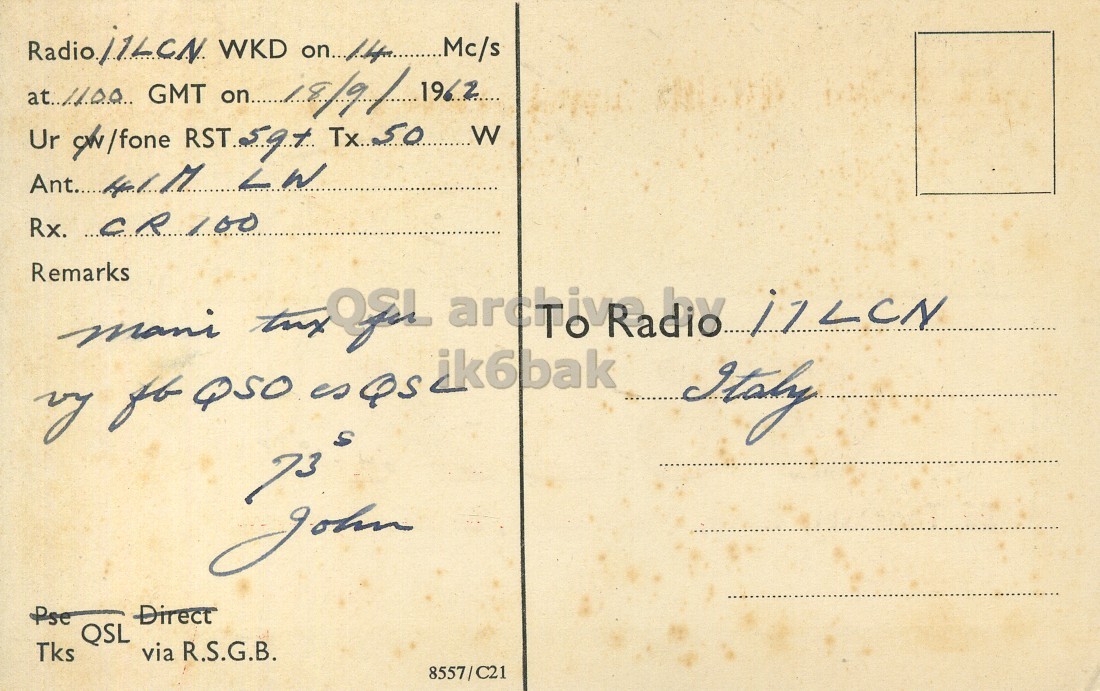 Radio i1LCN WKD on 14 Mc/s
at 1100 GMT on 18/9/ 1962
Ur cw/fone RST 59+ Tx 50 W
Ant. 41M LW
Rx. CR 100
Remarks
Mani tnx fer
vy fb QSO es QSL
73s
John
Pse QSL Direct
Tks via R.S.G.B.
8557/C21
To Radio i1LCN
Italy
QSL archive by
ik6bak